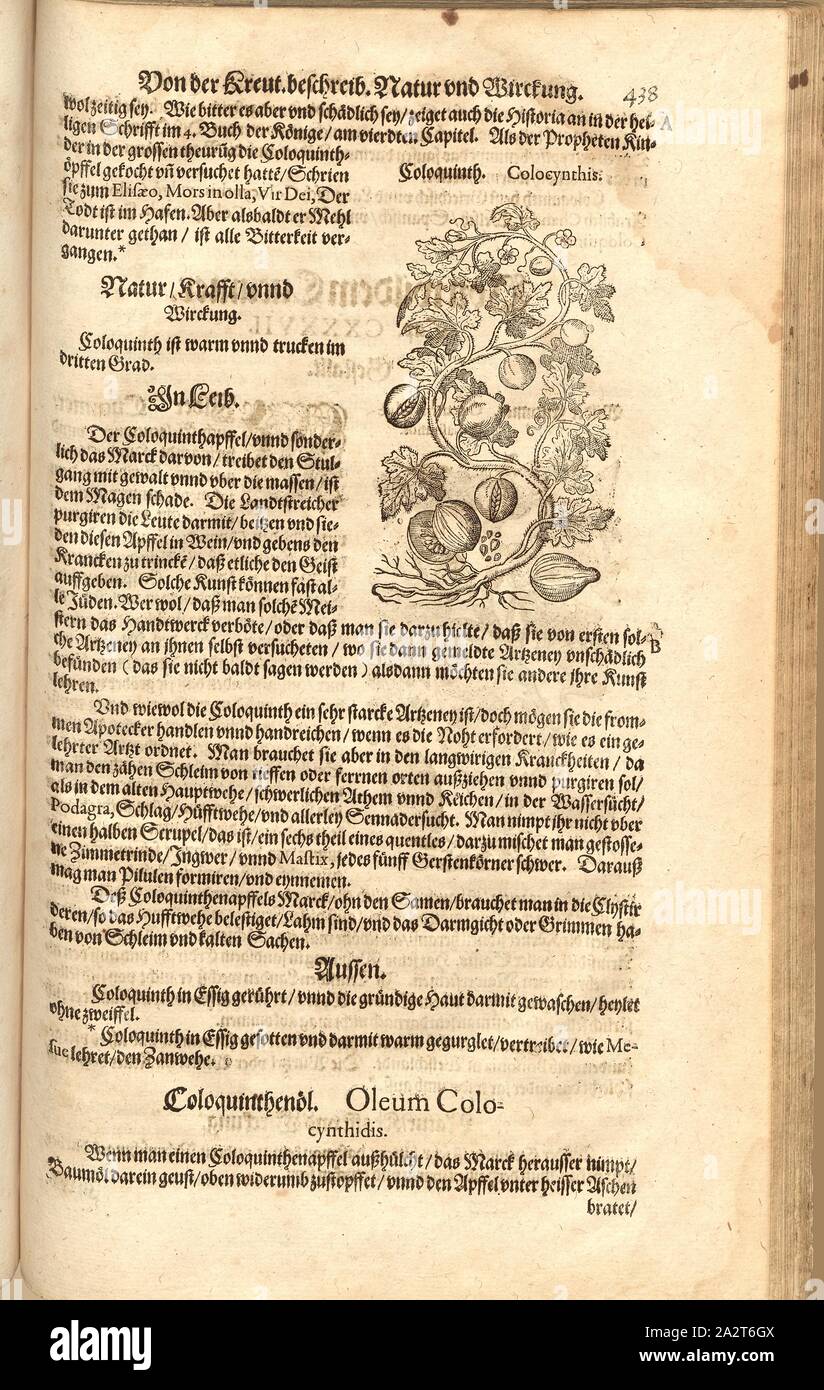 Von der Kreut. beschreib. Natur vnd Wirckung. 438
wol zeitig sey. Wie bitter es aber vnd schädlich sey/ zeiget auch die Historia an in der hei- A
ligen Schrifft im 4. Buch der Könige/ am vierdten Capitel. Als der Propheten Kin-
der in der grossen theurũg die Coloquinth-
öpffel gekocht vñ versuchet hattẽ/ Schrien
sie zum Elisæo, Mors in olla, Vir Dei, Der
Todt ist im Hafen. Aber alsbaldt er Mehl
darunter gethan/ ist alle Bitterkeit ver-
gangen.*
Coloquinth. Colocynthis.
Natur/ Krafft/ vnnd
Wirckung.
Coloquinth ist warm vnnd trucken im
dritten Grad.
In Leib.
Der Coloquinthapffel/ vnnd sonder-
lich das Marck darvon/ treibet den Stul-
gang mit gewalt vnnd vber die massen/ ist
dem Magen schade. Die Landtstreicher
purgiren die Leute darmit/ beitzen vnd sie-
den diesen Apffel in Wein/ vnd gebens den
Krancken zu trinckẽ/ daß etliche den Geist
auffgeben. Solche Kunst können fast al-
le Jüden. Wer wol/ daß man solchẽ Mei-
stern das Handtwerck verböte/ oder daß man sie darzu hielte/ daß sie von ersten sol- B
che Artzeney an jhnen selbst versucheten/ wo sie dann gemeldte Artzeney vnschädlich
befünden (das sie nicht baldt sagen werden) alsdann möchten sie andere jhre Kunst
lehren.
Vnd wiewol die Coloquinth ein sehr starcke Artzeney ist/ doch mögen sie die from-
men Apotecker handlen vnnd handreichen/ wenn es die Noht erfordert/ wie es ein ge-
lehrter Artzt ordnet. Man brauchet sie aber in den langwirigen Kranckheiten/ da
man den zähen Schleim von tieffen oder ferrnen orten außziehen vnnd purgiren sol/
als in dem alten Hauptwehe/ schwerlichen Athem vnnd Keichen/ in der Wassersücht/
Podagra, Schlag/ Hüfftwehe/ vnd allerley Sennadersucht. Man nimpt jhr nicht vber
einen halben Scrupel/ das ist/ ein sechs theil eines quentles/ darzu mischet man gestosse-
ne Zimmetrinde/ Ingwer/ vnnd Mastix, jedes fünff Gerstenkörner schwer. Darauß
mag man Pilulen formiren/ vnd eynnemen.
Deß Coloquinthenapffels Marck/ ohn den Samen/ brauchet man in die Clystir
deren/ so das Hufftwehe belestiget/ Lahm sind/ vnd das Darmgicht oder Grimmen ha-
ben von Schleim vnd kalten Sachen.
Aussen.
Coloquinth in Essig gerührt/ vnnd die gründige Haut darmit gewaschen/ heylet
ohne zweiffel.
* Coloquinth in Essig gesotten vnd darmit warm gegurglet/ vertreibet/ wie Me-
sue lehret/ den Zanwehe.
Coloquinthenöl. Oleum Colo-
cynthidis.
Wenn man einen Coloquinthenapffel außhülcht/ das Marck herausser nimpt/
Baumöl darein geust/ oben widerumb zustopffet/ vnnd den Apffel vnter heisser Aschen
bratet/
alamy
Image ID: 2A2T6GX
www.alamy.com